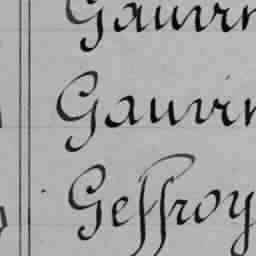 Gauvin
Gauvin
Geffroy